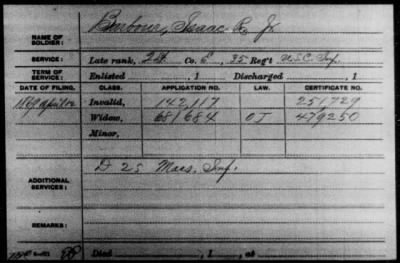 NAME OF SOLDIER: Barbour, Isaac R. Jr.
SERVICE: Late rank, Co. E, 35 Reg't U.S.C. Inf.
TERM OF SERVICE: Enlisted , 1 Discharged , 1
DATE OF FILING. CLASS. APPLICATION NO. LAW. CERTIFICATE NO.
Invalid, 142,117 251,729
Widow, 681684 O J 479250
Minor,
ADDITIONAL SERVICES: D 25 Mass. Inf.
REMARKS:
Died , 1 , at